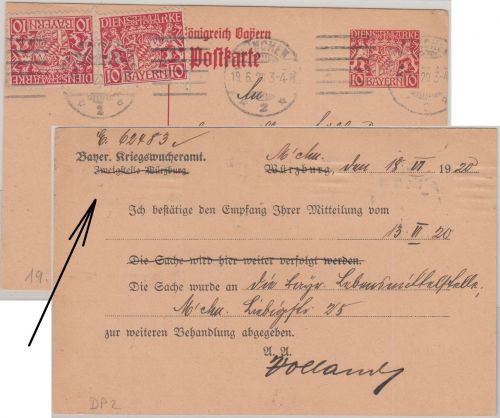 10 DIENSTMARKE 10
BAYERN
DIENSTMARKE
10 BAYERN 10
Königreich Bayern
Postkarte
MÜNCHEN
2
DIENSTMARKE
10 10
An
E. 62483
Bayer. Kriegswucheramt.
Zweigstelle Würzburg.
Mchn.
Würzburg, den 18 VI 1920
Ich bestätige den Empfang Ihrer Mitteilung vom
13 VI 20
Die Sache wird hier weiter verfolgt werden.
Die Sache wurde an die bayr. Lebensmittelstelle,
Mchn. Liebigstr 25
zur weiteren Behandlung abgegeben.
A. A.
19.
DP 2